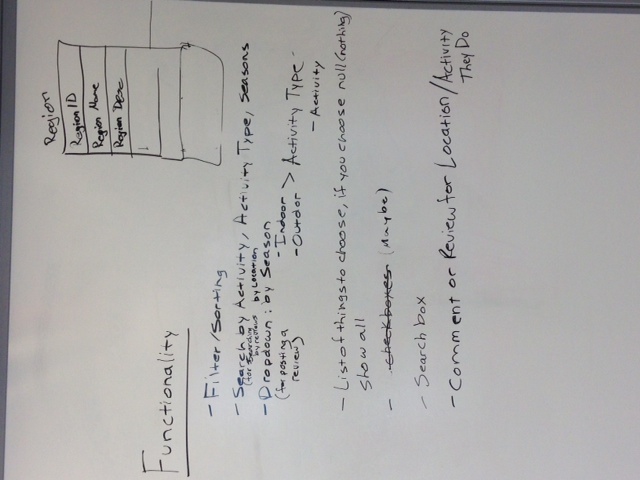 Region
Region ID
Region Name
Region Desc
Functionality
- Filter/Sorting
- Search by Activity, Activity Type, seasons
(for searching by location
by reviews
- Dropdown: by Season
(for posting a
review)
- Indoor
- Outdor > Activity Type
- Activity
- List of things to choose, if you choose null (nothing)
show all
- checkboxes (Maybe)
- Search box
- Comment or Review for Location/Activity
They Do